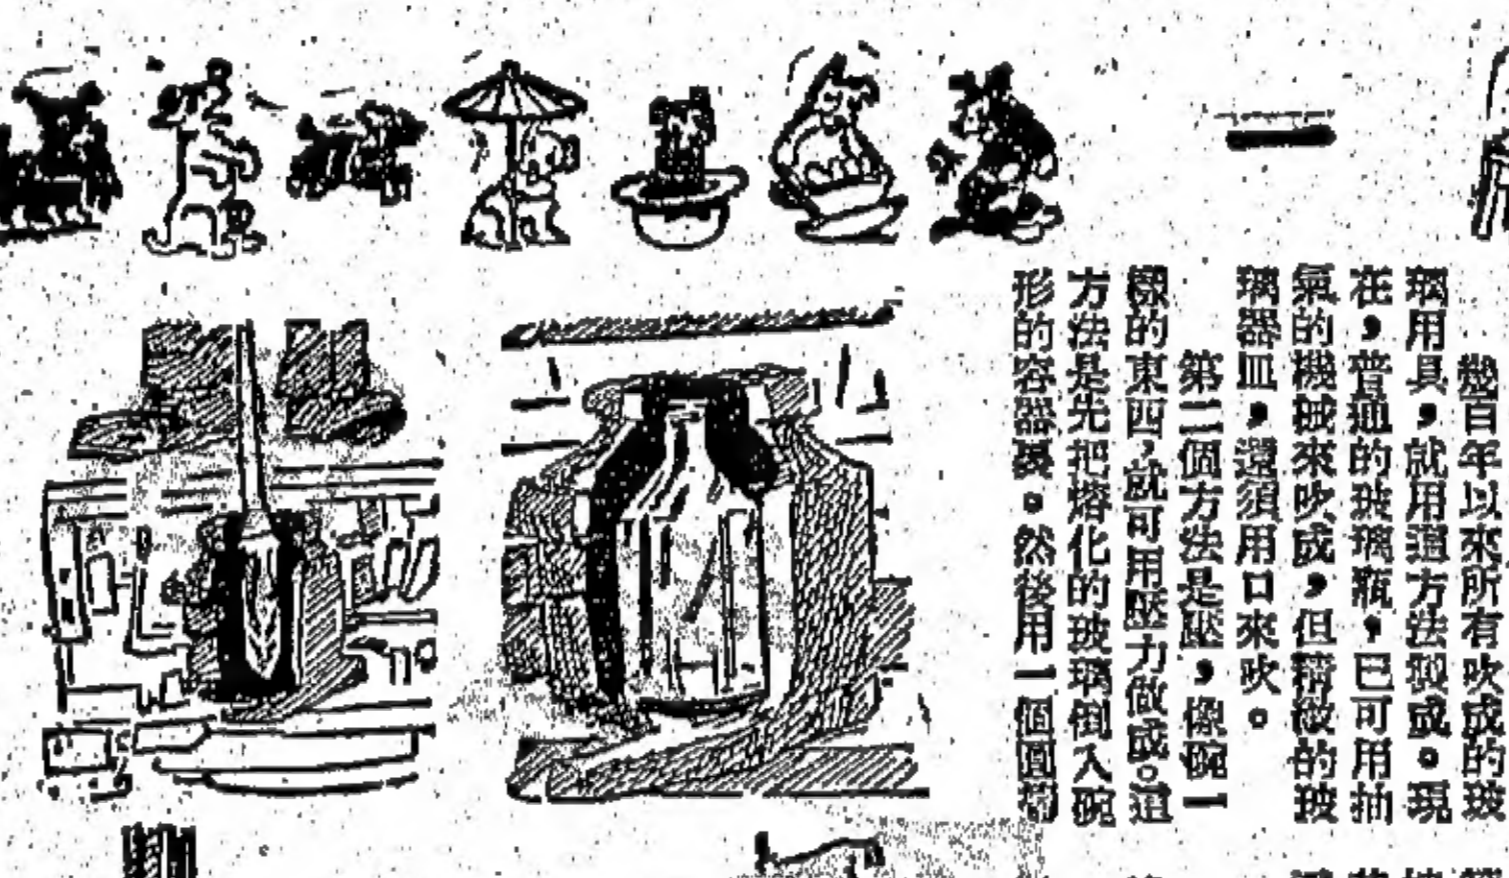 幾百年以來所有吹成的玻
璃用具，就用這方法製成。現
在，普通的玻璃瓶，已可用抽
氣的機械來吹成，但精緻的玻
璃器皿，還須用口來吹。
第二個方法是壓，像碗一
樣的東西，就可用壓力做成。這
方法是先把熔化的玻璃倒入碗
形的容器裏。然後用一個圓筒